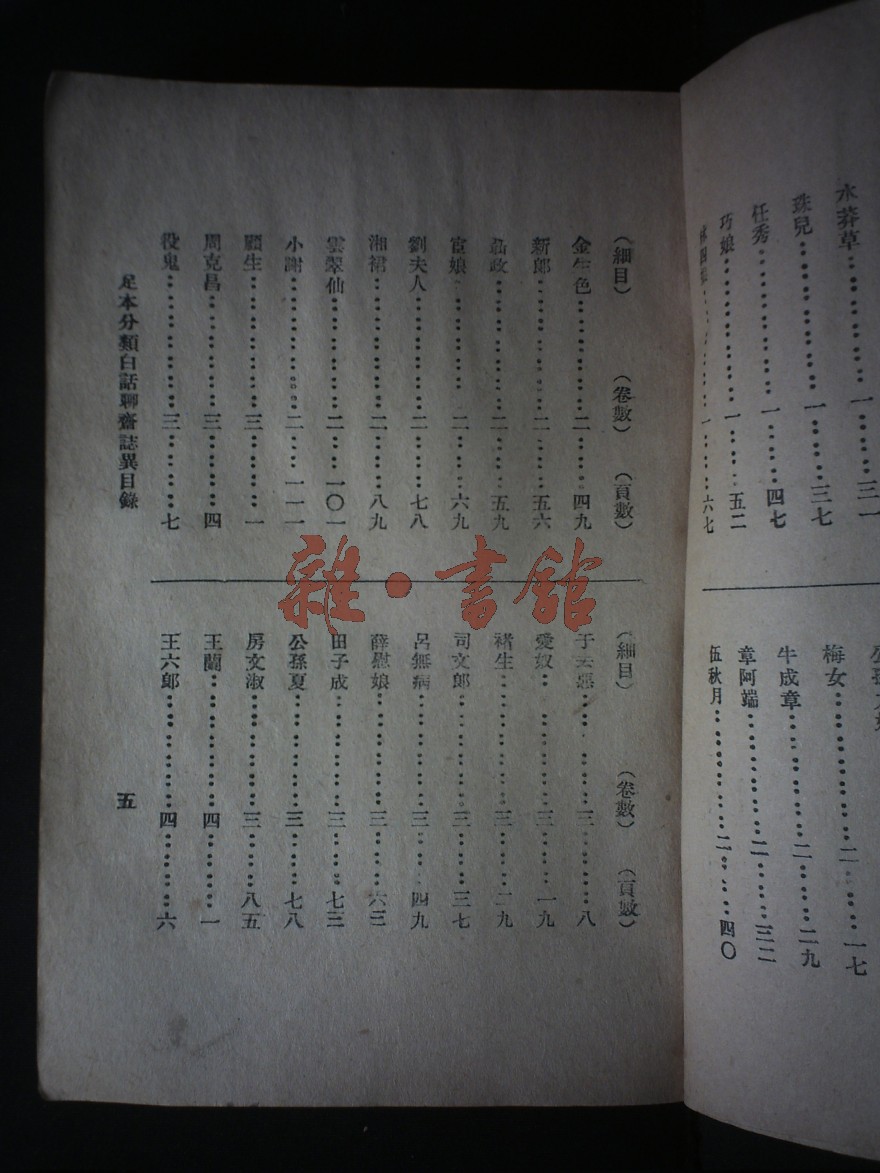 水莽草………一……三一
珠兒………一……三七
任秀………一……四七
巧娘………一……五二
林四娘………一……六七
梅女………二……一七
牛成章………二……二九
章阿端………二……三二
伍秋月………二……四〇
（細目）　（卷數）　（頁數）
金生色………二……四九
新郎………二……五六
……五九
宦娘………二……六九
劉夫人………二……七八
湘裙………二……八九
雲翠仙………二……一〇一
小謝………二……一一一
顧生………三……一
周克昌………三……四
役鬼………三……七
（細目）　（卷數）　（頁數）
于去惡………三……八
愛奴………三……一九
褚生………三……二九
司文郎………三……三七
呂無病………三……四九
薛慰娘………三……六三
田子成………三……七三
公孫夏………三……七八
房文淑………三……八五
王蘭………四……一
王六郎………四……六
足本分類白話聊齋誌異目錄
五
雜·書館